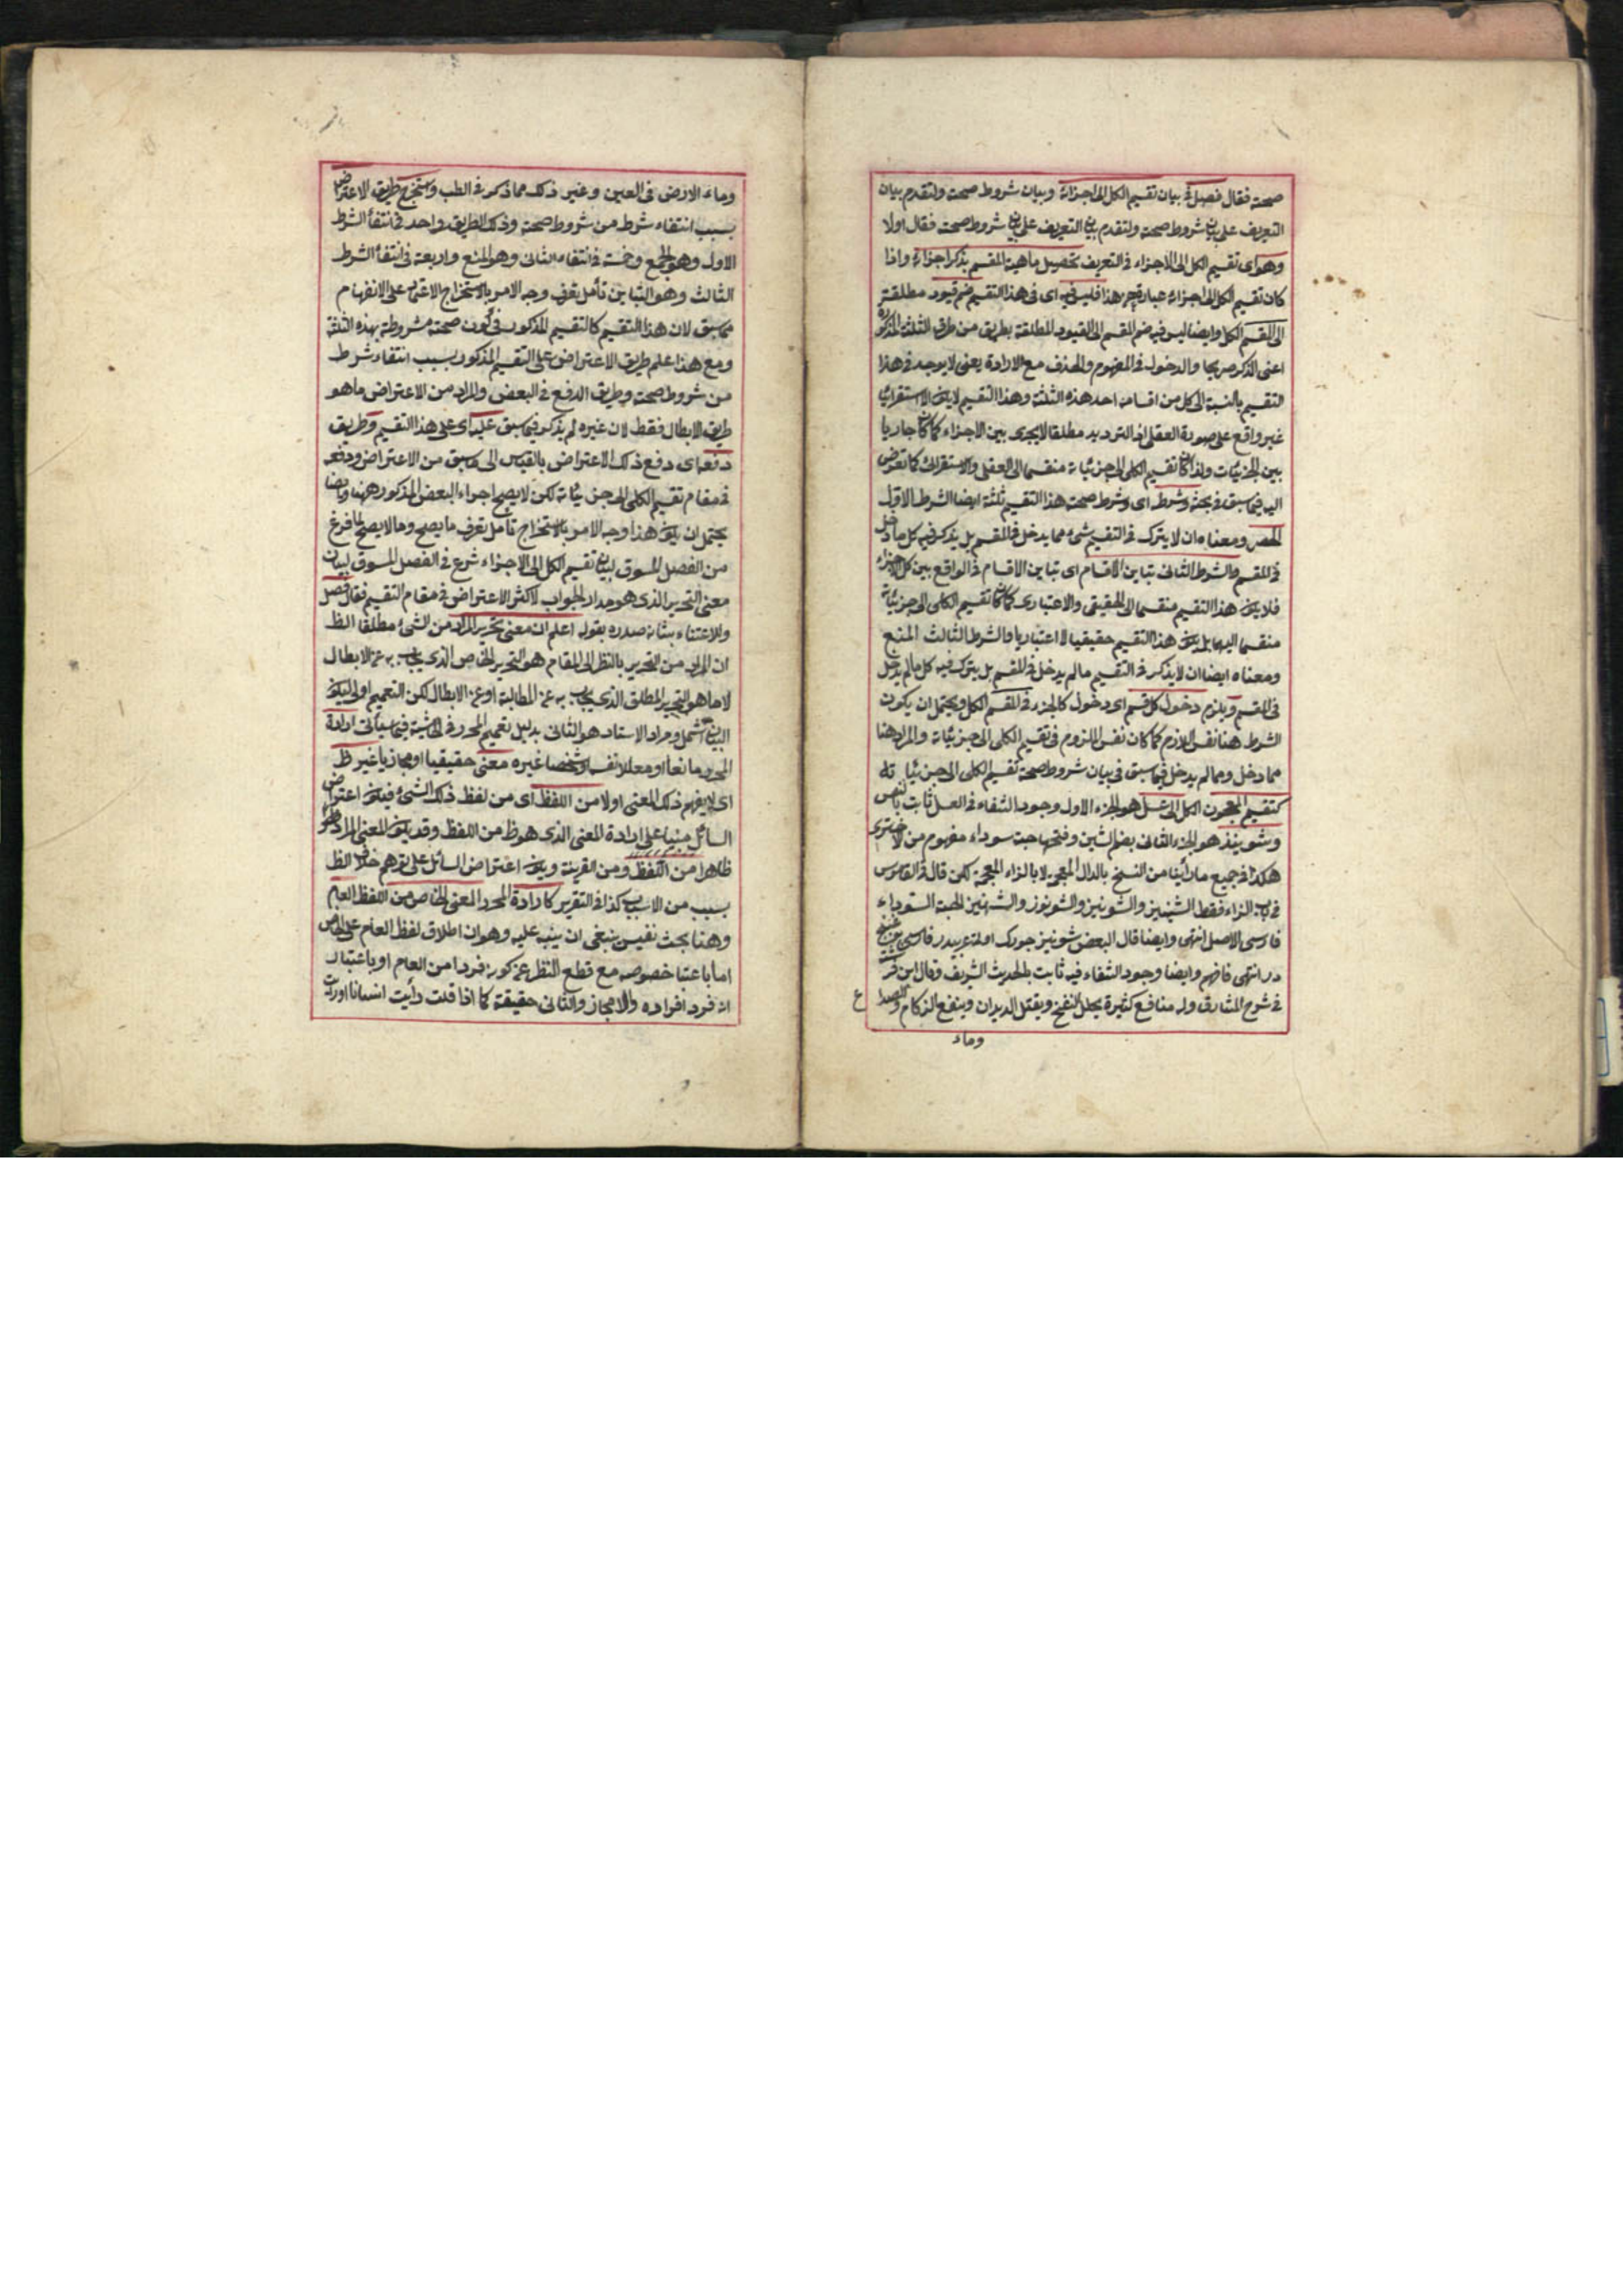 صحته فقال فصل فى بيان تقسيم الكل الى اجزائه وبيان شروط صحته ولتقدم بيان
التعريف على بيان شروط صحته ولتقدم بيان التعريف على بيان شروط صحته فقال اولا
وهو اى تقسيم الكل الى الاجزاء فى التعريف تحصيل ماهية المقسم بذكر اجزائه واذا
كان تقسيم الكل الى اجزائه عبارة عن هذا فليس فيه اى فى هذا التقسيم ضم قيود مطلقة
الى المقسم الكل وايضا ليس فيه ضم المقسم الى القيود المطلقة بطريق من طرق الثلثة المذكورة
اعنى الذكر صريحا والدخول فى المفهوم والحذف مع الارادة يعنى لا يوجد فى هذا
التقسيم بالنسبة الى كل من اقسامه احد هذه الثلثة وهذا التقسيم لا يكون الا استقرائيا
غير واقع على صورة العقلى اذ الترديد مطلقا لا يجرى بين الاجزاء كما كان جاريا
بين الجزئيات ولذا كان تقسيم الكلى الى جزئياته منقسما الى العقلى والاستقرائى كما تعرض
اليه فيما سبق فى بحثه وشرط اى وشرط صحة هذا التقسيم ثلثة ايضا الشرط الاول
الحصر ومعناه ان لا يترك فى التقسيم شئ مما يدخل فى المقسم بل يذكر فيه كل ما دخل
فى المقسم والشرط الثانى تباين الاقسام اى تباين الاقسام فى الواقع بين كل الاجزاء
فلا يكون هذا التقسيم منقسما الى الحقيقى والاعتبارى كما كان تقسيم الكلى الى جزئياته
منقسما اليهما بل يكون هذا التقسيم حقيقيا لا اعتباريا والشرط الثالث المنع
ومعناه ايضا ان لا يذكر فى التقسيم مالم يدخل فى المقسم بل يترك فيه كل مالم يدخل
فى المقسم ويلزم دخول كل قسم اى دخول كالجزء فى المقسم الكل ويحتمل ان يكون
الشرط هنا نفس اللازم كما كان نفس الملزوم فى تقسيم الكلى الى جزئياته والمراد هنا
مما دخل ومما لم يدخل فيما سبق فى بيان شروط صحة تقسيم الكلى الى جزئياته
كتقسيم المعجون الكل الى عسل هو الجزء الاول وجود الشفاء فى العسل ثابت بالنص
وشونيذ هو الجزء الثانى بضم الشين وفتحها حبة سوداء مفهوم من الاخترى
هكذا فى جميع ما رأينا من النسخ بالدال المعجمة لا بالزاء المعجمة لكن قال فى القاموس
فى باب الزاء فقط الشينيز والشونيز والشونوز والشهنيز الحبة السوداء
فارسى الاصل انتهى وايضا قال البعض شونيز جورك اوتنه عربيدر فارسى
در انتهى فافهم وايضا وجود الشفاء فيه ثابت بالحديث الشريف وقال ابن فرشته
فى شرح المشارق وله منافع كثيرة يحلل النفخ ويقتل الديدان وينفع الزكام والصداع
وماء
وماء الارض فى العين وغير ذلك مما ذكر فى الطب ويستخرج طريق الاعتراض
بسبب انتفاء شرط من شروط صحته وذلك الطريق واحد فى انتفاء الشرط
الاول وهو الجمع وخمسة فى انتفاء الثانى وهو المنع واربعة فى انتفاء الشرط
الثالث وهو التباين تأمل تعرف وجه الامر بالاستخراج الاعتماد على الانفهام
مما سبق لان هذا التقسيم كالتقسيم المذكور فى كون صحته مشروطة بهذه الثلثة
ومع هذا علم طريق الاعتراض على التقسيم المذكور بسبب انتفاء شرط
من شروط صحته وطريق الدفع فى البعض والمراد من الاعتراض ما هو
طريق الابطال فقط لان غيره لم يذكر فيما سبق عليه اى على هذا التقسيم وطريق
دفعه اى دفع ذلك الاعتراض بالقياس الى ما سبق من الاعتراض ودفعه
فى مقام تقسيم الكلى الى جزئياته لكن لا يصح اجراء البعض المذكور ههنا وايضا
يحتمل ان يكون هذا وجه الامر بالاستخراج تأمل تعرف ما يصح وما لا يصح لما فرغ
من الفصل المسوق لبيان تقسيم الكل الى الاجزاء شرع فى الفصل المسوق لبيان
معنى التحرير الذى هو مدار الجواب لاكثر الاعتراض فى مقام التقسيم فقال فصل
وللاعتناء بشانه صدره بقوله اعلم ان معنى تحرير المراد من الشئ مطلقا الظ
ان المراد من التحرير بالنظر الى المقام هو التحرير الخاص الذى يجاب به عن الابطال
لا ما هو التحرير المطلق الذى يجاب به عن المطالبة او عن الابطال لكن التعميم اولى ليكون
البيان اشمل ومراد الاستاد هو الثانى بدليل تعميم المحرر فى الحاشية فيما سيأتى ارادة
المحرر مانعا او معللا نفسه او شخصا غيره معنى حقيقيا او مجازيا غير ظ
اى لا يفهم ذلك المعنى اولا من اللفظ اى من لفظ ذلك الشئ فيكون اعتراض
السائل مبنيا على ارادة المعنى الذى هو ظ من اللفظ وقد يكون المعنى المراد هو
ظاهرا من اللفظ ومن القرينة ويكون اعتراض السائل على توهم خلاف الظ
بسبب من الاسباب كذا فى التقرير كارادة المحرر المعنى الخاص من اللفظ العام
وهنا بحث نفيس ينبغى ان ينبه عليه وهو ان اطلاق لفظ العام على الخاص
اما باعتبا خصوصه مع قطع النظر عن كونه فردا من العام او باعتبار
انه فرد افراده والا مجاز والثانى حقيقة كما اذا قلت رأيت انسانا اوردت